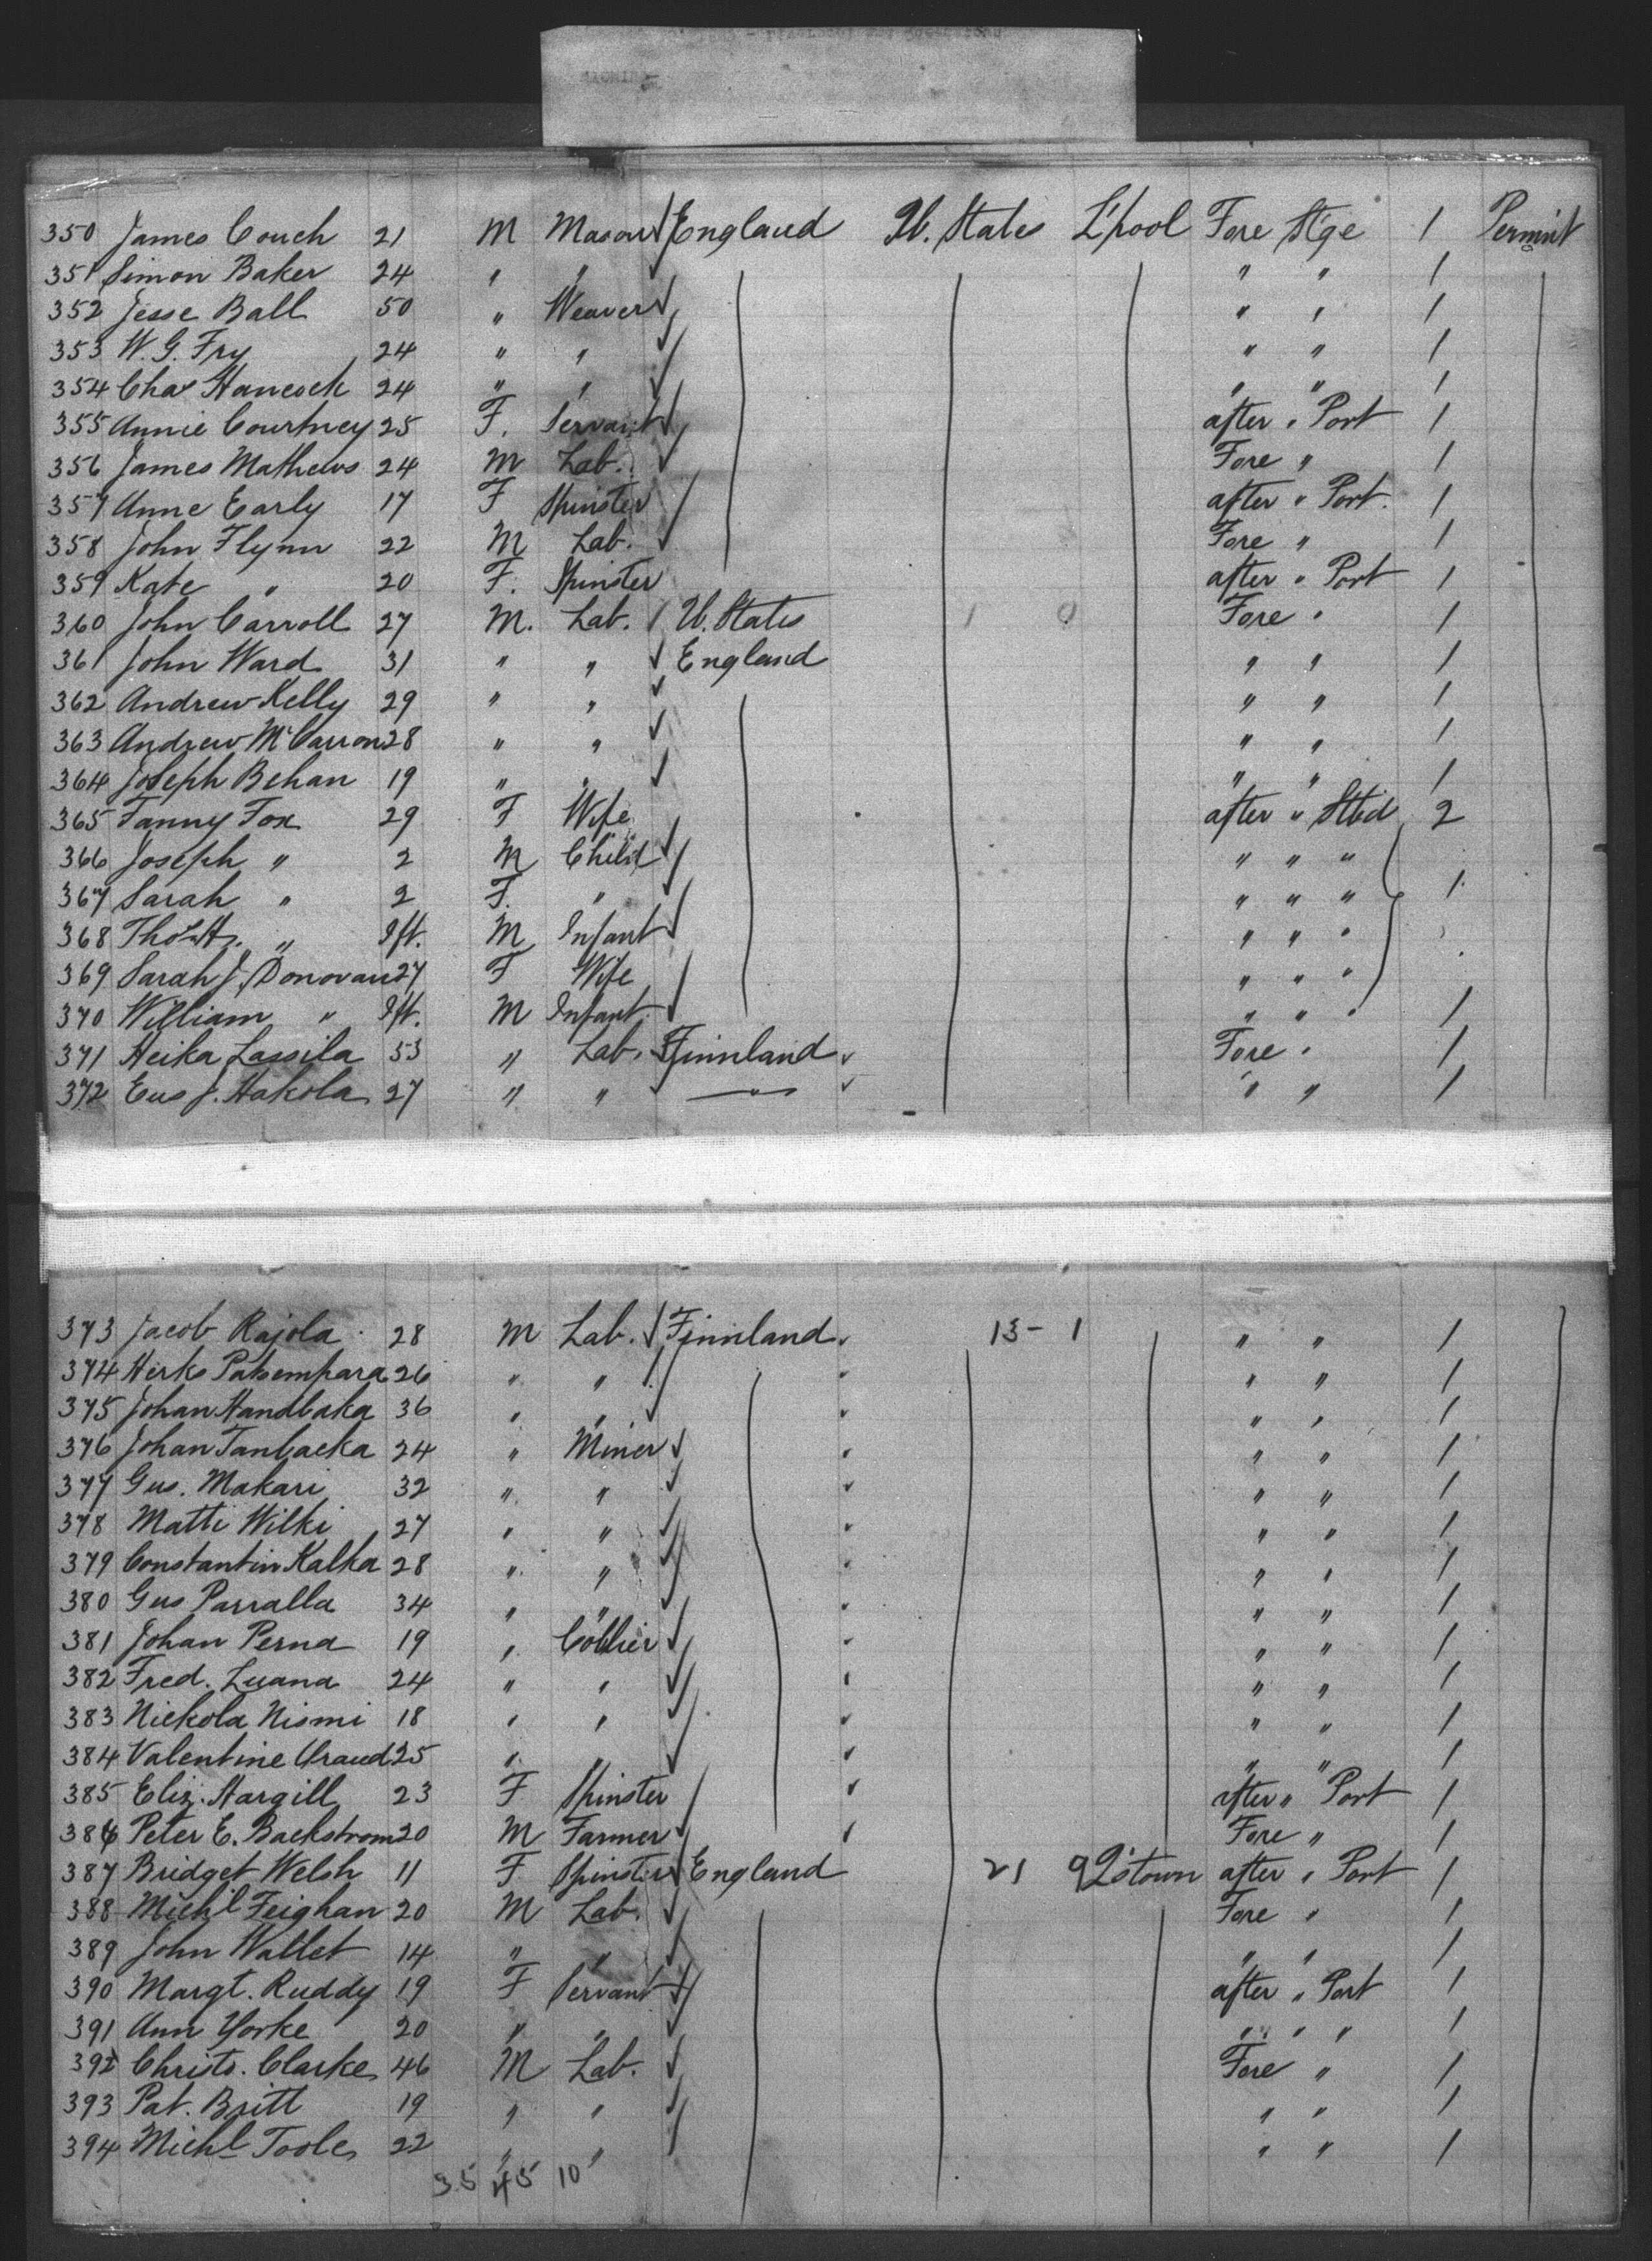 350 James Couch 21 M Mason England U. States L'pool Fore St'ge 1 Permit
351 Simon Baker 24 " " " " 1
352 Jesse Ball 50 " Weaver " " 1
353 W. G. Fry 24 " " " " 1
354 Chas Hancock 24 " " " " 1
355 Annie Courtney 25 F. Servant after " Port 1
356 James Mathews 24 M Lab. Fore " 1
357 Anne Early 17 F Spinster after " Port. 1
358 John Flynn 22 M Lab. Fore " 1
359 Kate " 20 F. Spinster after " Port 1
360 John Carroll 27 M. Lab. U. States 1 0 Fore " 1
361 John Ward 31 " " England " " 1
362 Andrew Kelly 29 " " " " 1
363 Andrew McCarron 28 " " " " 1
364 Joseph Behan 19 " " " " 1
365 Fanny Fox 29 F Wife after " Stbd 2
366 Joseph " 2 M Child " " "
367 Sarah " 2 F. " " " " 1
368 Thos H. " Ift. M Infant " " "
369 Sarah J. Donovan 27 F Wife " " "
370 William " Ift. M Infant " " " 1
371 Heika Lassila 53 " Lab. Finnland Fore " 1
372 Eus J. Hakola 27 " " " " " 1
373 Jacob Rajola 28 M Lab. Finnland 13 - 1 " " 1
374 Herks 26 " " " " 1
375 Johan Handbaka 36 " " " " 1
376 Johan Tanbacka 24 " Miner " " 1
377 Gus. Makari 32 " " " " 1
378 Matti Wilki 27 " " " " 1
379 Constantin Kalka 28 " " " " 1
380 Gus Parralla 34 " " " " 1
381 Johan Perna 19 " Collier " " 1
382 Fred. Luana 24 " " " " 1
383 Nickola Nismi 18 " " " " 1
384 Valentine 25 " " " " 1
385 Eliz. Hargill 23 F Spinster after " Port 1
386 Peter E. Backstrom 20 M Farmer Fore " 1
387 Bridget Welsh 11 F Spinster England 21 9 Q'stown after " Port 1
388 Michl Feighan 20 M Lab. Fore " 1
389 John Wallet 14 " " " " 1
390 Margt. Ruddy 19 F Servant after " Port 1
391 Ann Yorke 20 " " " " " 1
392 Christo. Clarke 46 M Lab. Fore " 1
393 Pat. Britt 19 " " " " 1
394 Michl Toole 22 " " " " 1
35 45 10